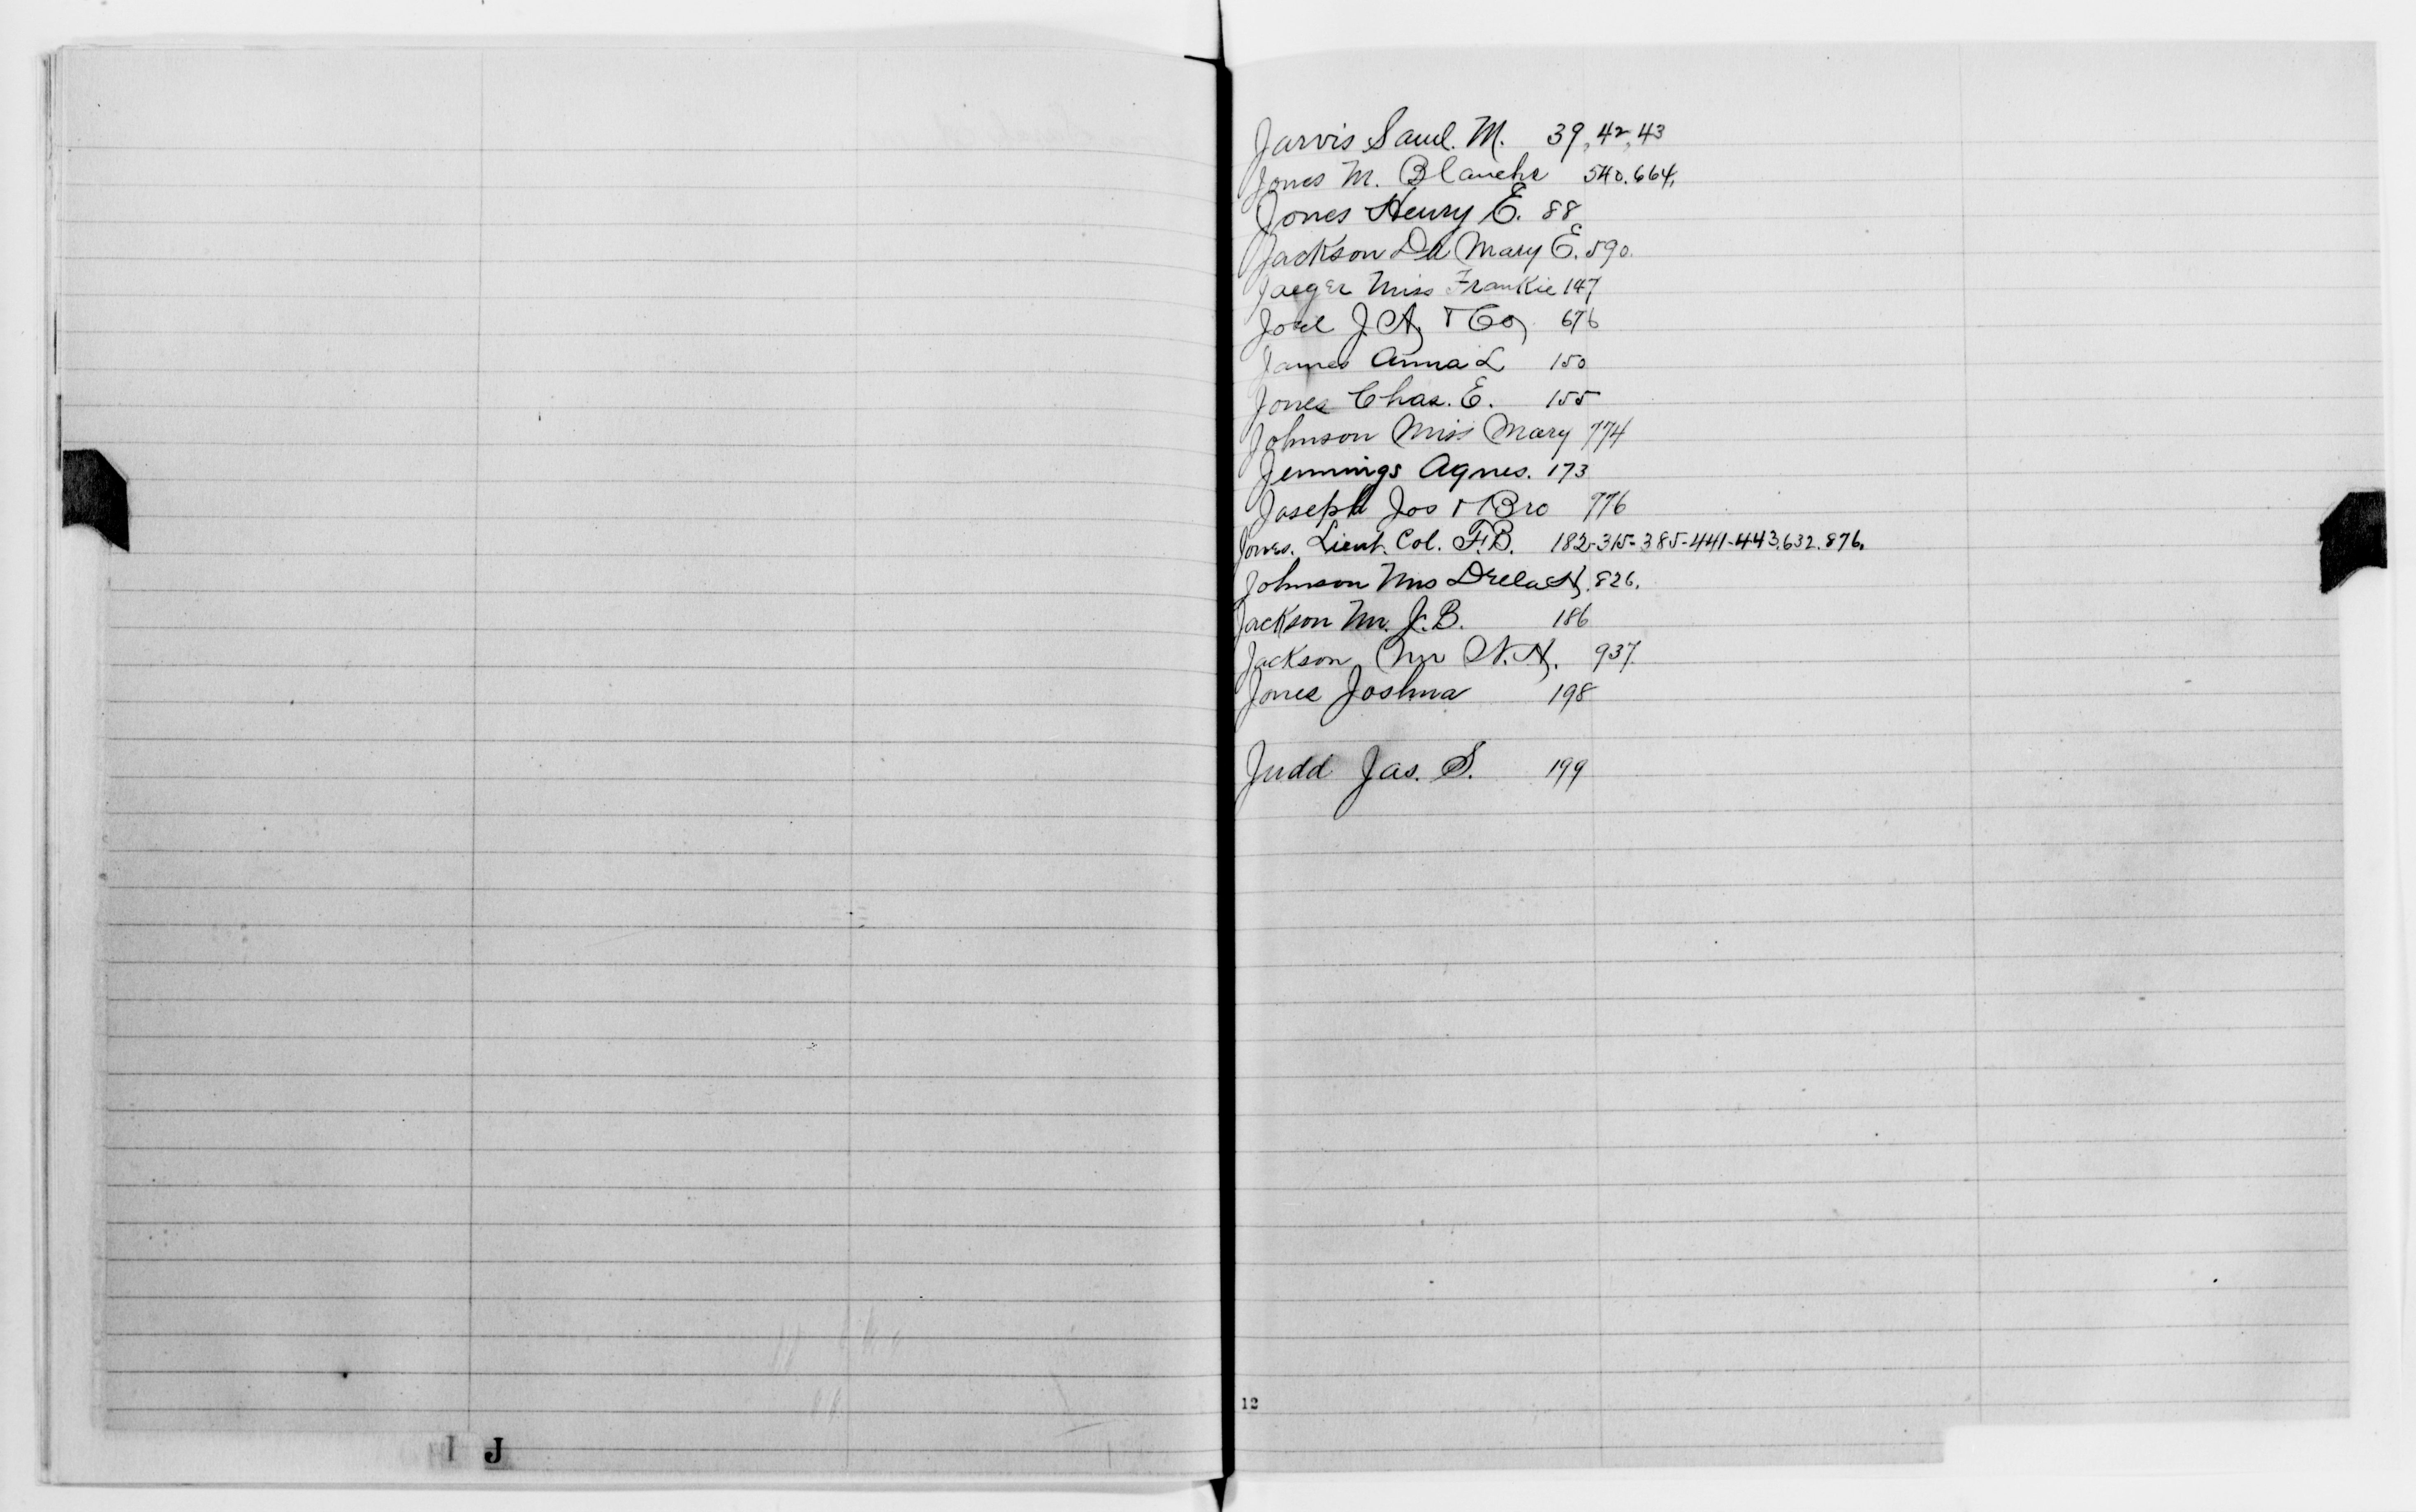 Jarvis Saml. M. 39, 42, 43
Jones M. Blanche 540. 664.
Jones Henry E. 88
Jackson Dr Mary E. 590.
Jaeger Miss Frankie 147
Joel J. A. & Co, 676
James Anna L 150
Jones Chas. E. 155
Johnson Miss Mary 774
Jennings Agnes. 173
Joseph Jos & Bro 776
Jones. Lieut. Col. F.B. 182-315-385-441-443.632.876.
Johnson Mrs H. 826.
Jackson Mr. J. B. 186
Jackson Mr N. H. 937.
Jones Joshua 198
Judd Jas. S. 199
12
I J